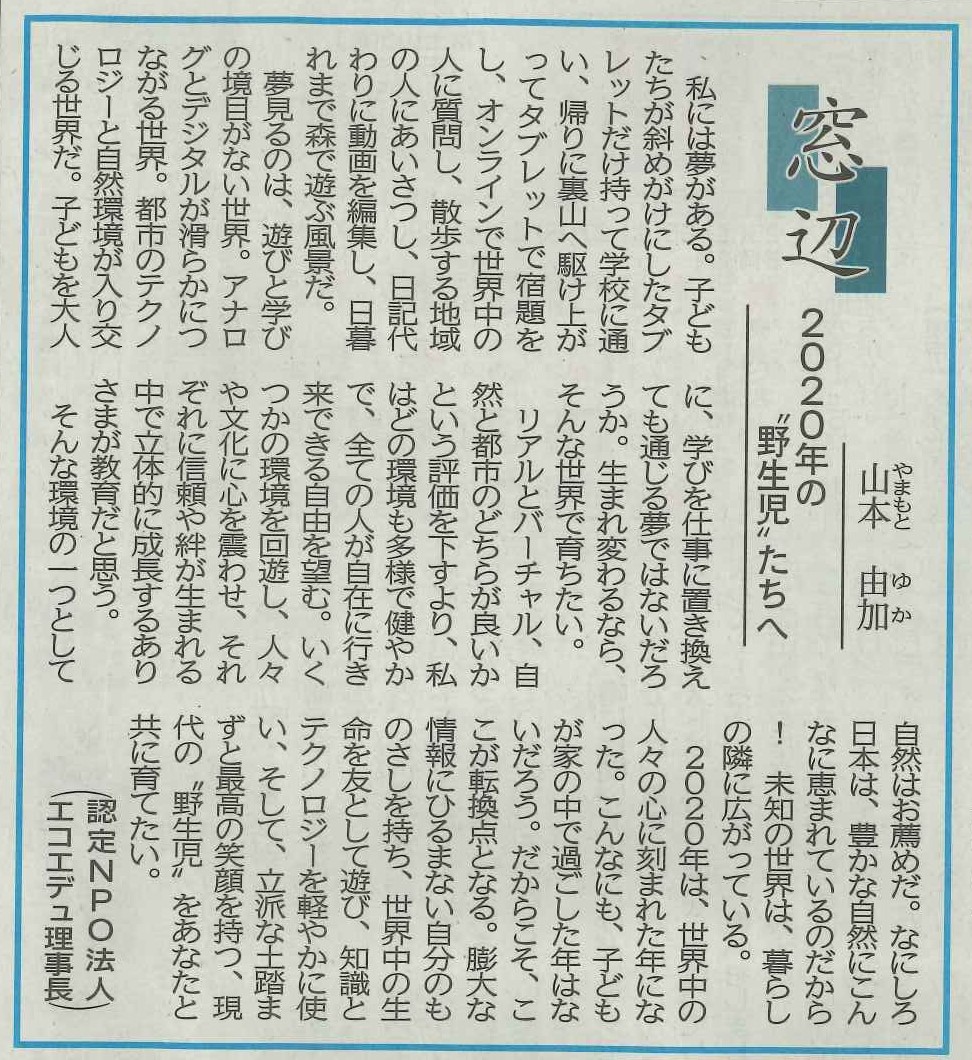 窓辺
2020年の
〝野生児〟たちへ
やまもと ゆか
山本 由加
　私には夢がある。子ども
たちが斜めがけにしたタブ
レットだけ持って学校に通
い、帰りに裏山へ駆け上が
ってタブレットで宿題を
し、オンラインで世界中の
人に質問し、散歩する地域
の人にあいさつし、日記代
わりに動画を編集し、日暮
れまで森で遊ぶ風景だ。
　夢見るのは、遊びと学び
の境目がない世界。アナロ
グとデジタルが滑らかにつ
ながる世界。都市のテクノ
ロジーと自然環境が入り交
じる世界だ。子どもを大人
に、学びを仕事に置き換え
ても通じる夢ではないだろ
うか。生まれ変わるなら、
そんな世界で育ちたい。
　リアルとバーチャル、自
然と都市のどちらが良いか
という評価を下すより、私
はどの環境も多様で健やか
で、全ての人が自在に行き
来できる自由を望む。いく
つかの環境を回遊し、人々
や文化に心を震わせ、それ
ぞれに信頼や絆が生まれる
中で立体的に成長するあり
さまが教育だと思う。
　そんな環境の一つとして
自然はお薦めだ。なにしろ
日本は、豊かな自然にこん
なに恵まれているのだから
！　未知の世界は、暮らし
の隣に広がっている。
　2020年は、世界中の
人々の心に刻まれた年にな
った。こんなにも、子ども
が家の中で過ごした年はな
いだろう。だからこそ、こ
こが転換点となる。膨大な
情報にひるまない自分のも
のさしを持ち、世界中の生
命を友として遊び、知識と
テクノロジーを軽やかに使
い、そして、立派な土踏ま
ずと最高の笑顔を持つ、現
代の〝野生児〟をあなたと
共に育てたい。
（認定NPO法人
エコエデュ理事長）